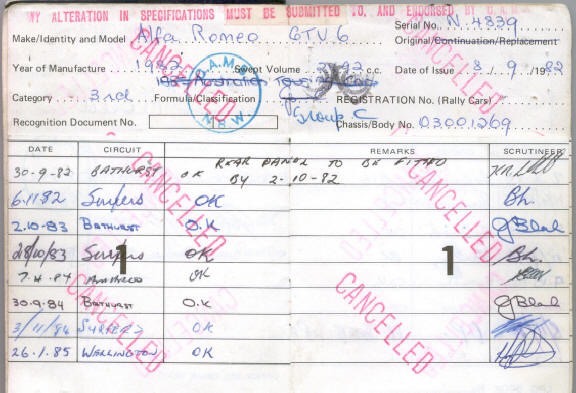 ANY ALTERATION IN SPECIFICATIONS MUST BE SUBMITTED TO, AND ENDORSED BY C.A.M.S.
Serial No. N-4839
Make/Identity and Model Alfa Romeo GTV6
Original/Continuation/Replacement
Year of Manufacture 1982 Swept Volume 2492 c.c. Date of Issue 8/9/1982
C.A.M.S. N.S.W.
Category 3rd Formula/Classification Group C REGISTRATION No. (Rally Cars)
Recognition Document No. Chassis/Body No. 03001269
DATE CIRCUIT REMARKS SCRUTINEER
30-9-82 BATHURST OK REAR PANEL TO BE FITTED
BY 2-10-82
6.11.82 Surfers OK Bh.
2.10-83 Bathurst O.K
28/10/83 Surfers OK Bh.
OK
30-9-84 Bathurst O.K
3/11/84 SURFERS OK
26.1.85 WALLINGTON OK
1 1
CANCELLED
CANCELLED
CANCELLED
CANCELLED
CANCELLED
CANCELLED